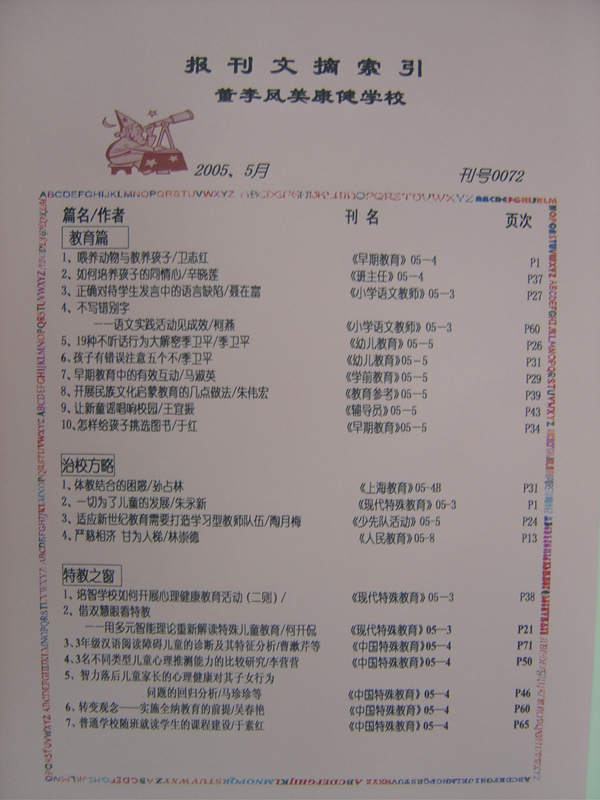 报刊文摘索引
董李凤美康健学校
2005、5月 刊号0072
ABCDEFGHIJKLMNOPQRSTUVWXYZ ABCDEFGHIJKLMNOPQRSTUVWXYZ ABCDEFGHIJKLM
篇名/作者 刊 名 页次
教育篇
1、喂养动物与教养孩子/卫志红 《早期教育》05-4 P1
2、如何培养孩子的同情心/辛晓莲 《班主任》05-4 P37
3、正确对待学生发言中的语言缺陷/聂在富 《小学语文教师》05-3 P27
4、不写错别字
——语文实践活动见成效/柯燕 《小学语文教师》05-3 P60
5、19种不听话行为大解密季卫平/季卫平 《幼儿教育》05-5 P26
6、孩子有错误注意五个不/季卫平 《幼儿教育》05-5 P31
7、早期教育中的有效互动/马淑英 《学前教育》05-5 P29
8、开展民族文化启蒙教育的几点做法/朱伟宏 《教育参考》05-5 P39
9、让新童谣唱响校园/王宜振 《辅导员》05-5 P43
10、怎样给孩子挑选图书/于红 《早期教育》05-5 P34
治校方略
1、体教结合的困惑/孙占林 《上海教育》05-4B P31
2、一切为了儿童的发展/朱永新 《现代特殊教育》05-3 P1
3、适应新世纪教育需要打造学习型教师队伍/陶月梅 《少先队活动》05-5 P24
4、严慈相济 甘为人梯/林崇德 《人民教育》05-8 P13
特教之窗
1、培智学校如何开展心理健康教育活动（二则）/ 《现代特殊教育》05-3 P38
2、借双慧眼看特教
——用多元智能理论重新解读特殊儿童教育/何开侃 《现代特殊教育》05-3 P21
3、3年级汉语阅读障碍儿童的诊断及其特征分析/曹漱芹等 《中国特殊教育》05-4 P71
4、3名不同类型儿童心理推测能力的比较研究/李营营 《中国特殊教育》05-4 P50
5、智力落后儿童家长的心理健康对其子女行为
问题的回归分析/马珍珍等 《中国特殊教育》05-4 P46
6、转变观念——实施全纳教育的前提/吴春艳 《中国特殊教育》05-4 P60
7、普通学校随班就读学生的课程建设/于素红 《中国特殊教育》05-4 P65